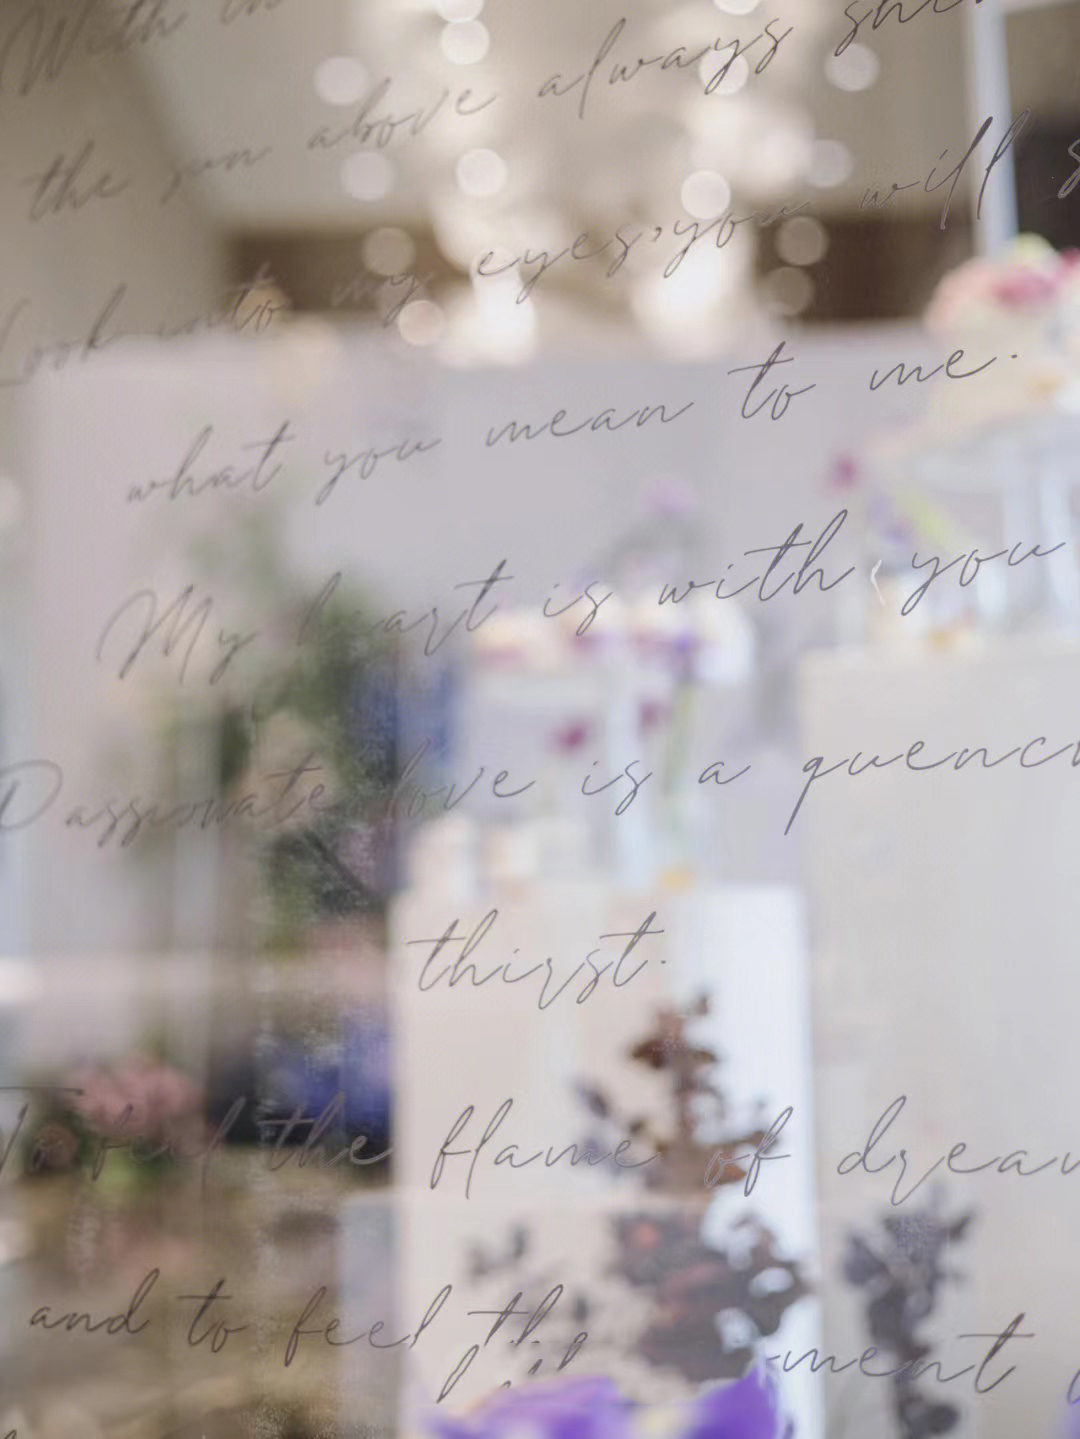 With in
the sun above always shi
Look into my eyes, you will s
what you mean to me.
My heart is with you
Passionate love is a quenc
thirst.
To feel the flame of dream
and to feel the ment